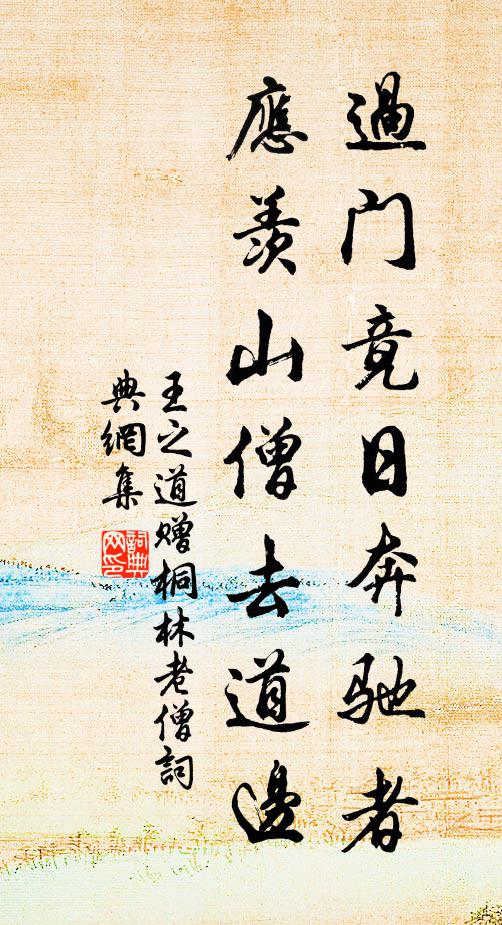 過門竟日奔馳者
應羨山僧去道邊
王之道贈桐林老僧詞
典網集
詞典网印